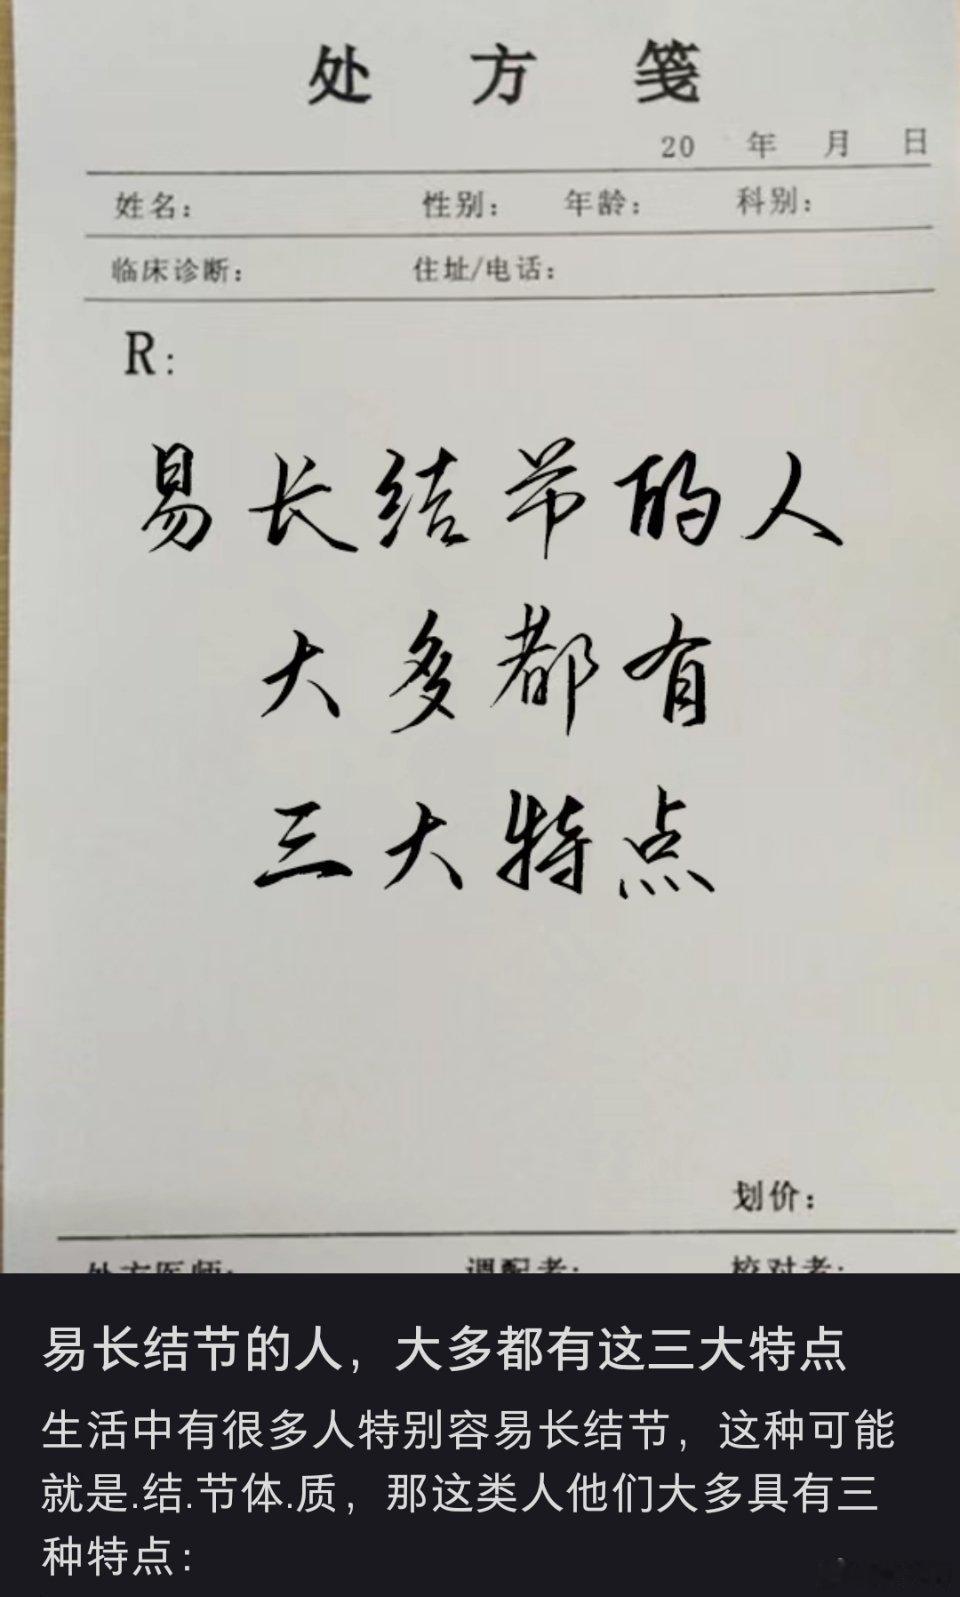 处方笺
20 年 月 日
姓名： 性别： 年龄： 科别：
临床诊断： 住址/电话：
R：
易长结节的人
大多都有
三大特点
划价：
处方医师： 调配者： 校对者：
易长结节的人，大多都有这三大特点
生活中有很多人特别容易长结节，这种可能
就是.结.节体.质，那这类人他们大多具有三
种特点：